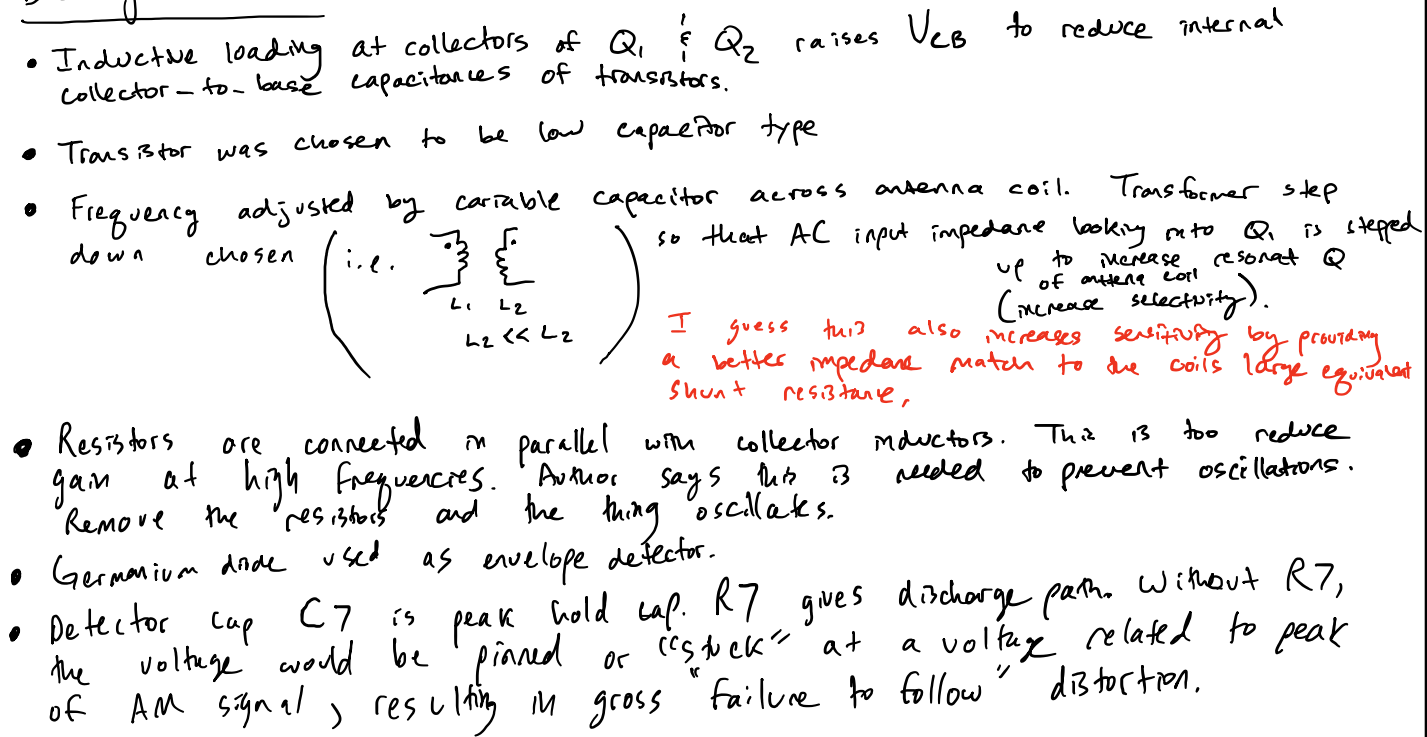 • Inductive loading at collectors of Q1 & Q2 raises VCB to reduce internal
collector-to-base capacitances of transistors.
• Transistor was chosen to be low capacitor type
• Frequency adjusted by cariable capacitor across antenna coil. Transformer step
down chosen (i.e. L1 L2 L2 << L2) so that AC input impedane looking into Q1 is stepped
up to increase resonat Q
of antena coil
(increase selectivity).
I guess this also increases sensitivity by providing
a better impedane match to the coils large equivalent
shunt resistane,
• Resistors are connected in parallel with collector inductors. This is too reduce
gain at high frequencies. Author says this is needed to prevent oscillations.
Remove the resistors and the thing oscillates.
• Germanium diode used as envelope detector.
• Detector cap C7 is peak hold cap. R7 gives discharge path. Without R7,
the voltage would be pinned or "stuck" at a voltage related to peak
of AM signal, resulting in gross "failure to follow" distortion.